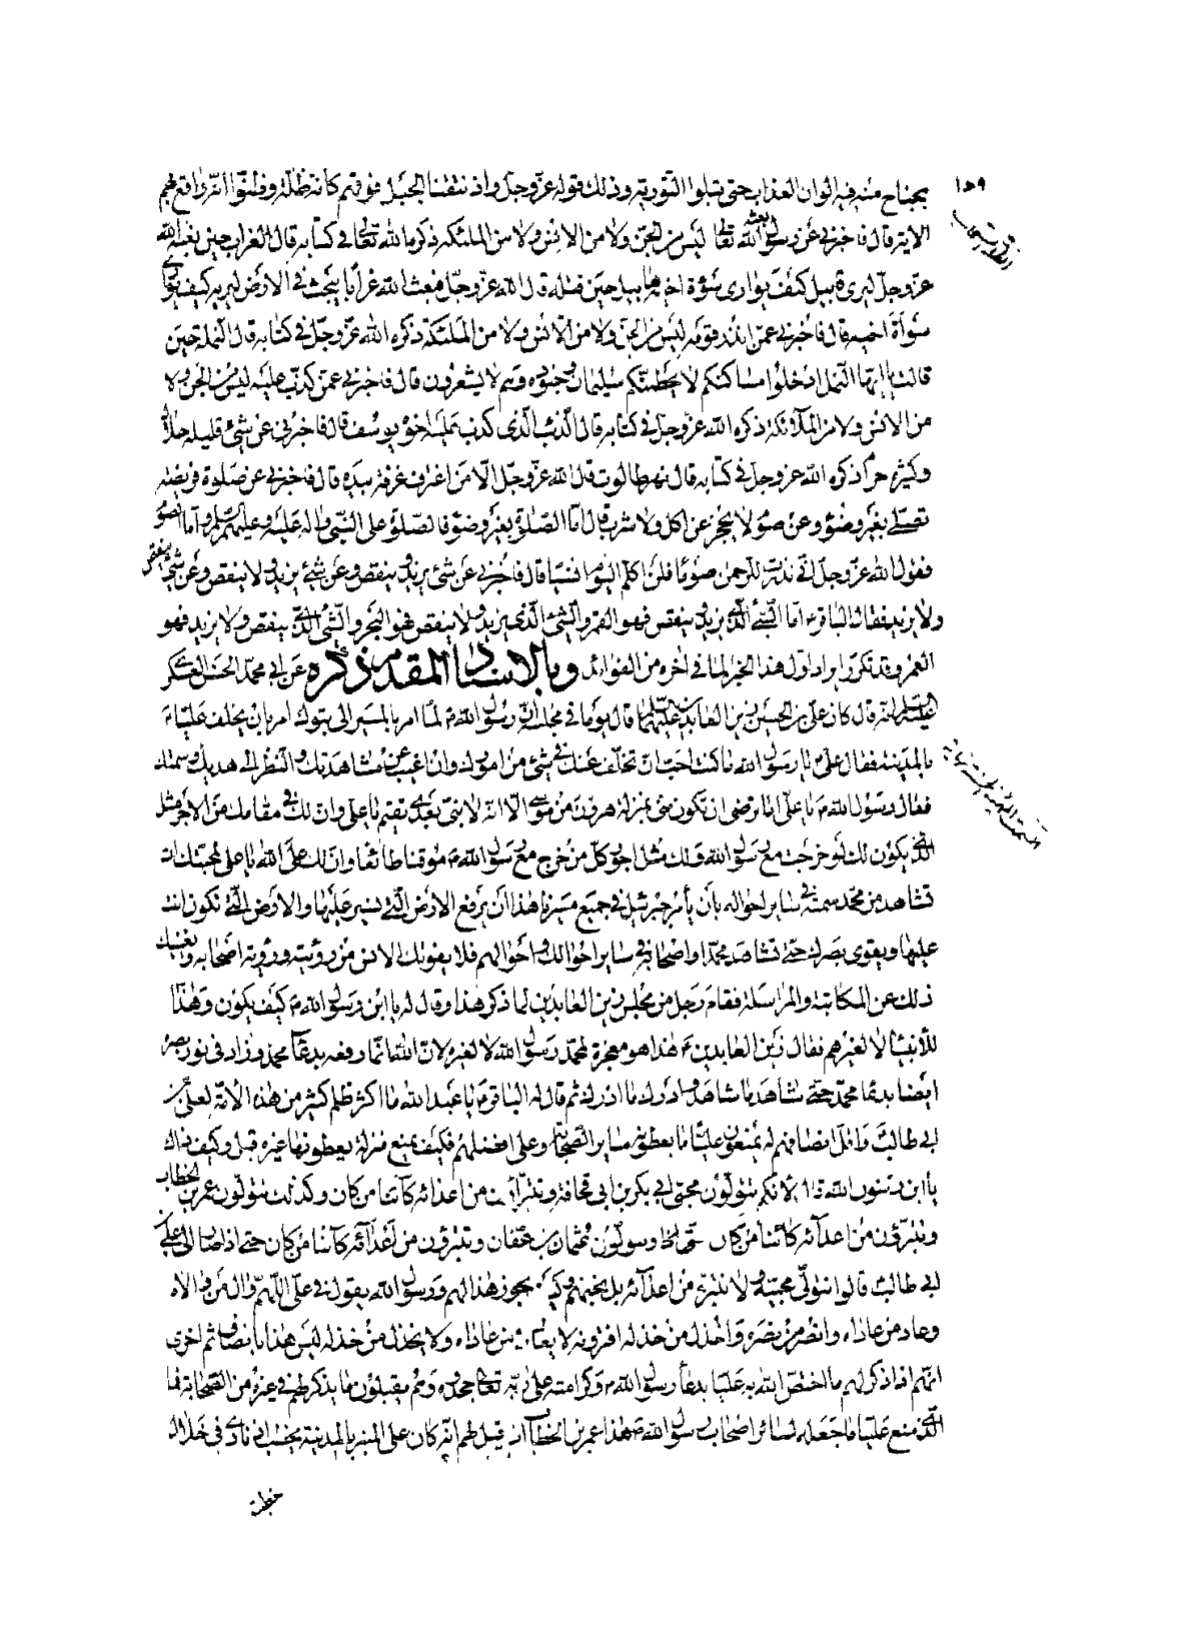 ١٥٩
بجناح منه فيه الوان العذاب حتى قبلوا التورية وذلك قوله عز وجل واذ نتقنا الجبل فوقهم كانه ظلة وظنوا انه واقع بهم
الاية قال فاخبرني عن رسول بعثه الله تعالى ليس من الجن ولا من الانس ولا من الملئكة ذكره الله تعالى في كتابه قال الغراب حين بعثه الله
عز وجل ليرى قابيل كيف يوارى سوءة اخيه هابيل حين قتله قال الله عز وجل فبعث الله غرابا يبحث في الارض ليريه كيف يوارى
سوأة اخيه قال فاخبرني عمن انذر قومه ليس من الجن ولا من الانس ولا من الملئكة ذكره الله عز وجل في كتابه قال النملة حين
قالت يا ايها النمل ادخلوا مساكنكم لا يحطمنكم سليمان وجنوده وهم لا يشعرون قال فاخبرني عمن كذب عليه ليس من الجن ولا
من الانس ولا من الملائكة ذكره الله عز وجل في كتابه قال الذئب الذى كذب عليه اخوة يوسف قال فاخبرني عن شئ قليله حلال
وكثيره حرام ذكره الله عز وجل في كتابه قال نهر طالوت قال الله عز وجل الا من اغترف غرفة بيده قال فاخبرني عن صلوة فريضة
تصلى بغير وضوء وعن صوم لا يحجز عن اكل ولا شرب قال اما الصلوة بغير وضوء فالصلوة على النبي واله عليه وعليهم السلم واما الصوم
فقول الله عز وجل انى نذرت للرحمن صوما فلن اكلم اليوم انسيا قال فاخبرني عن شئ يزيد وينقص وعن شئ يزيد ولا ينقص وعن شئ ينقص
ولا يزيد فقال الباقر ع اما الشئ الذى يزيد وينقص فهو القمر والشئ الذى يزيد ولا ينقص فهو البحر والشئ الذى ينقص ولا يزيد فهو
العمر وقد تكرر ايراد اول هذا الخبر لما في اخره من الفوائد وبالاسناد المقدم ذكره عن ابى محمد الحسن العسكرى
عليه السلم انه قال كان على بن الحسين زين العابدين عليهما السلم قال يوما في مجلسه ان رسول الله ص لما امر بالمسير الى تبوك امر بان يخلف عليا ع
بالمدينة فقال على ع يا رسول الله ما كنت احب ان تخلف عنك في شئ من امورك وان اغيب عن مشاهدتك والنظر الى هديك وسمتك
فقال رسول الله ص يا على اما ترضى ان تكون منى بمنزلة هرون من موسى الا انه لا نبى بعدى تقيم يا على وان لك في مقامك من الاجر مثل
الذى يكون لك لو خرجت مع رسول الله ولك مثل اجر كل من خرج مع رسول الله ص موقنا طائعا وان لك على الله يا على لمحبتك ان
تشاهد من محمد سمته في ساير احواله بان يأمر جبرئيل في جميع مسيرنا هذا ان يرفع الارض التى نسير عليها والارض التى تكون انت
عليها ويقوى بصرك حتى تشاهد محمدا واصحابه في ساير احوالك واحوالهم فلا يفوتك الانس من رؤيته ورؤية اصحابه ويغنيك
ذلك عن المكاتبة والمراسلة فقام رجل من مجلس زين العابدين لما ذكر هذا وقال له يا ابن رسول الله ص كيف يكون وهذا
للانبياء لا لغيرهم فقال زين العابدين ع هذا هو معجزة لمحمد رسول الله لا لغيره لان الله انما رفعه بدعاء محمد وزاد في نور بصره
ايضا بدعاء محمد حتى شاهد ما شاهد وادرك ما ادرك ثم قال له الباقر ع يا عبد الله ما اكثر ظلم كثير من هذه الامة لعلى بن
ابى طالب واقل انصافهم له يمنعون عليا ما يعطونه ساير الصحابة وعلى افضلهم فكيف يمنع منزلة يعطونها غيره قيل وكيف ذاك
يا ابن رسول الله قال لانكم تتولون محبى ابى بكر بن ابى قحافة وتتبرأون من اعدائه كائنا من كان وكذلك تتولون عمر بن الخطاب
وتتبرؤن من اعدائه كائنا من كان وتتولون عثمان بن عفان وتتبرؤن من اعدائه كائنا من كان حتى اذا صار الى على بن
ابى طالب قالوا نتولى محبيه ولا نتبرء من اعدائه بل نحبهم وكيف يجوز هذا لهم ورسول الله يقول في على اللهم وال من والاه
وعاد من عاداه وانصر من نصره واخذل من خذله افترونه لا يعادى من عاداه ولا يخذل من خذله ليس هذا بانصاف ثم اخرى
انهم اذا ذكر لهم ما اختص الله به عليا بدعاء رسول الله ص وكرامته على ربه تعالى جحدوه وهم يقبلون ما يذكر لهم في غيره من الصحابة فما
الذى منع عليا ما جعله لسائر اصحاب رسول الله ص هذا عمر بن الخطاب اذ قيل لهم انه كان على المنبر بالمدينة يخطب اذ نادى في خلال
خطبته